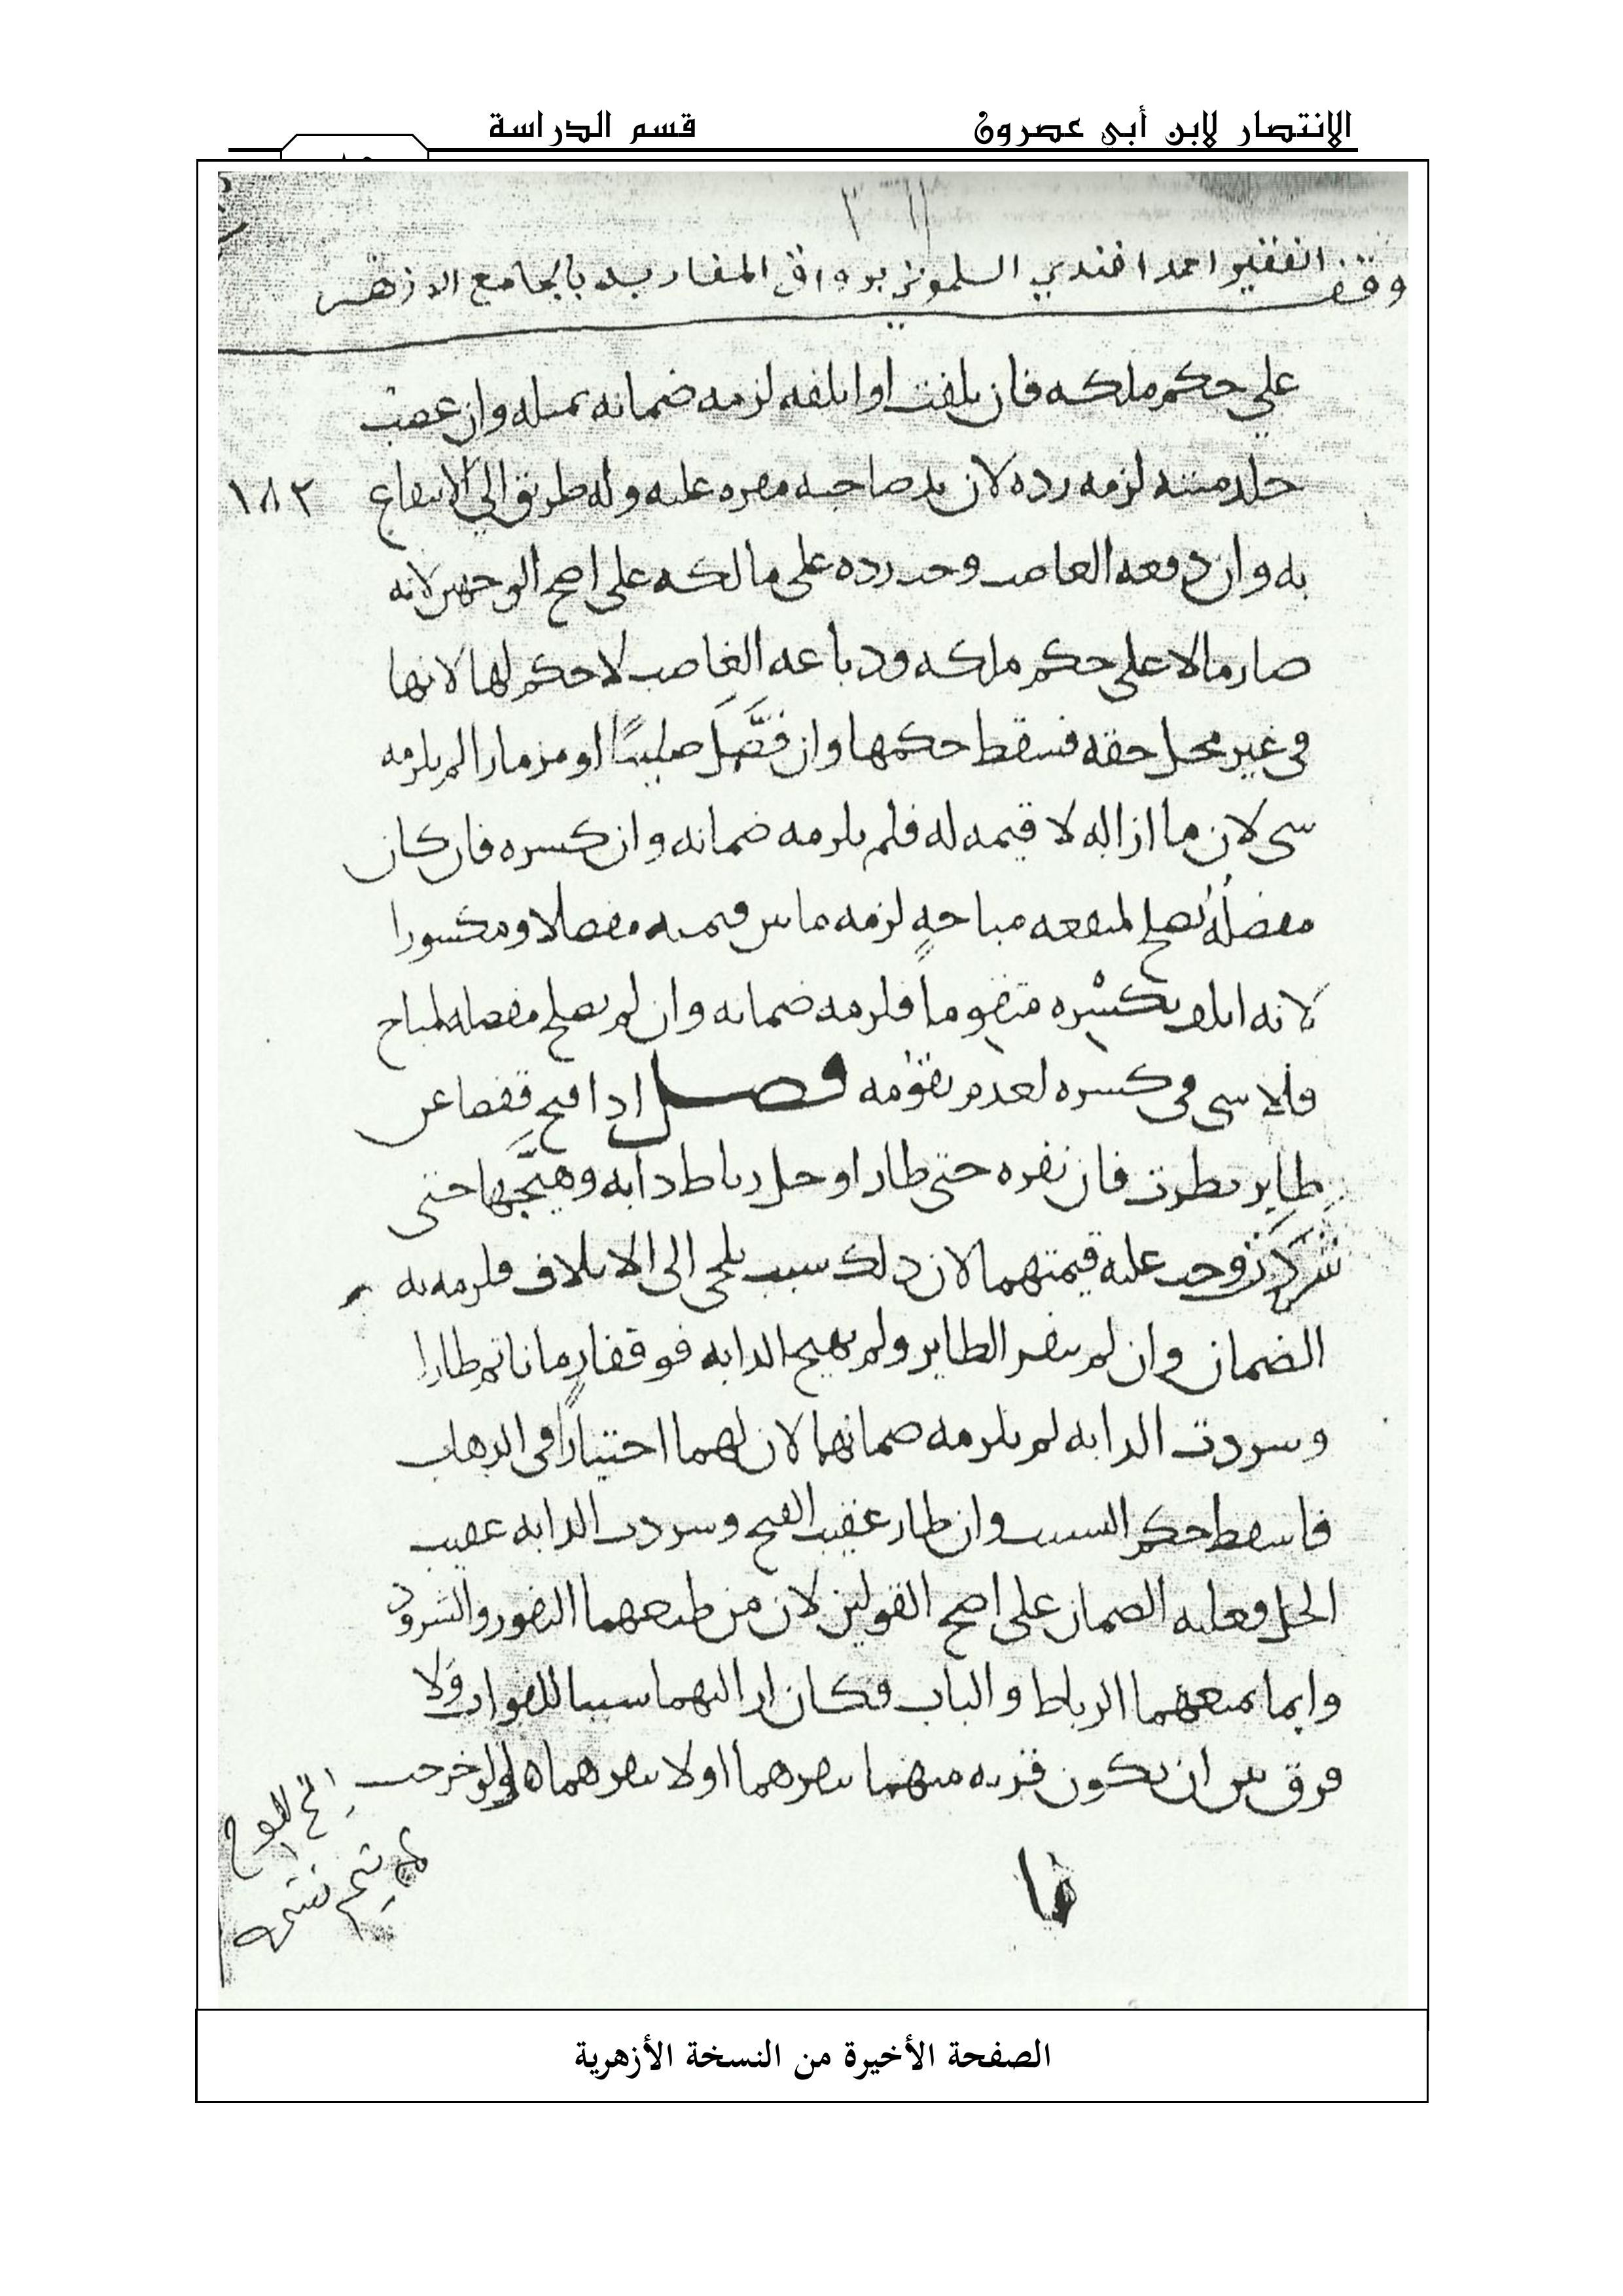 الانتصار لابن أبي عصرون
قسم الدراسة
وقف الفقير احمد افندي السلموني برواق المغاربه بالجامع الازهر
على حكم ملكه فان تلفت او اتلفه لزمه ضمانه بمثله وان غصب
جلد ميتة لزمه رده لان يد صاحبه مقره عليه وله طريق الى الانتفاع
١٨٢
به وان دبغه الغاصب وجب رده على مالكه على اصح الوجهين لانه
صار مالا على حكم ملكه ودباغه الغاصب لا حكم لها لانها
في غير محل حقه فسقط حكمها وان فصّل صليبًا او مزمارا لم يلزمه
شي لان ما ازاله لا قيمه له فلم يلزمه ضمانه وان كسره فان كان
مفصله يصلح لمنفعه مباحةٍ لزمه ما بين قيمته مفصلا ومكسورا
لانه اتلف بكسْره متقوما فلزمه ضمانه وان لم يصلح مفصله لمباح
فلا شي في كسره لعدم تقوّمه فصل اذا فتح قفصا عن
طاير نظرت فان نفره حتى طار او حل رباط دابه وهيّجها حتى
شردت وجب عليه قيمتهما لان ذلك سبب يلجي الى الاتلاف فلزمه به
الضمان وان لم ينفر الطاير ولم يهيج الدابه فوقفا زمانا ثم طارا
وشردت الدابه لم يلزمه ضمانهما لان لهما اختيارًا في الذهاب
فاسقط حكم السبب وان طار عقيب الفتح وشردت الدابه عقيب
الحل فعليه الضمان على اصح القولين لان من طبعهما النفور والشرود
وانما يمنعهما الرباط والباب فكان ازالتهما سببا للفوات ولا
فرق بين ان يكون قربه منهما ينفرهما او لا ينفرهما ولو خرجت
الصفحة الأخيرة من النسخة الأزهرية